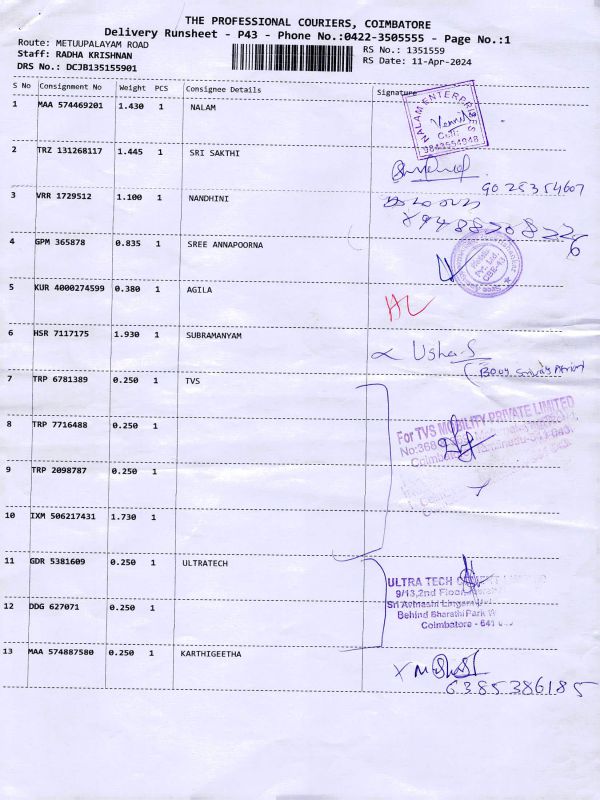 THE PROFESSIONAL COURIERS, COIMBATORE
Delivery Runsheet - P43 - Phone No.:0422-3505555 - Page No.:1
Route: METUUPALAYAM ROAD
RS No.: 1351559
Staff: RADHA KRISHNAN
RS Date: 11-Apr-2024
DRS No.: DCJB135155901
S No Consignment No Weight PCS Consignee Details Signature
1 MAA 574469201 1.430 1 NALAM
NALAM ENTERPRISES
9843554948
2 TRZ 131268117 1.445 1 SRI SAKTHI
9025354607
3 VRR 1729512 1.100 1 NANDHINI
4 GPM 365878 0.835 1 SREE ANNAPOORNA
5 KUR 4000274599 0.380 1 AGILA
6 HSR 7117175 1.930 1 SUBRAMANYAM
Usha.S
7 TRP 6781389 0.250 1 TVS
For TVS MOBILITY PRIVATE LIMITED
8 TRP 7716488 0.250 1
No:368
9 TRP 2098787 0.250 1
10 IXM 506217431 1.730 1
11 GDR 5381609 0.250 1 ULTRATECH
ULTRA TECH
9/13,2nd Floor
Sri Avinashi Lingam
12 DDG 627071 0.250 1
Behind Bharathi Park
Coimbatore - 641
13 MAA 574887580 0.250 1 KARTHIGEETHA
6385386185